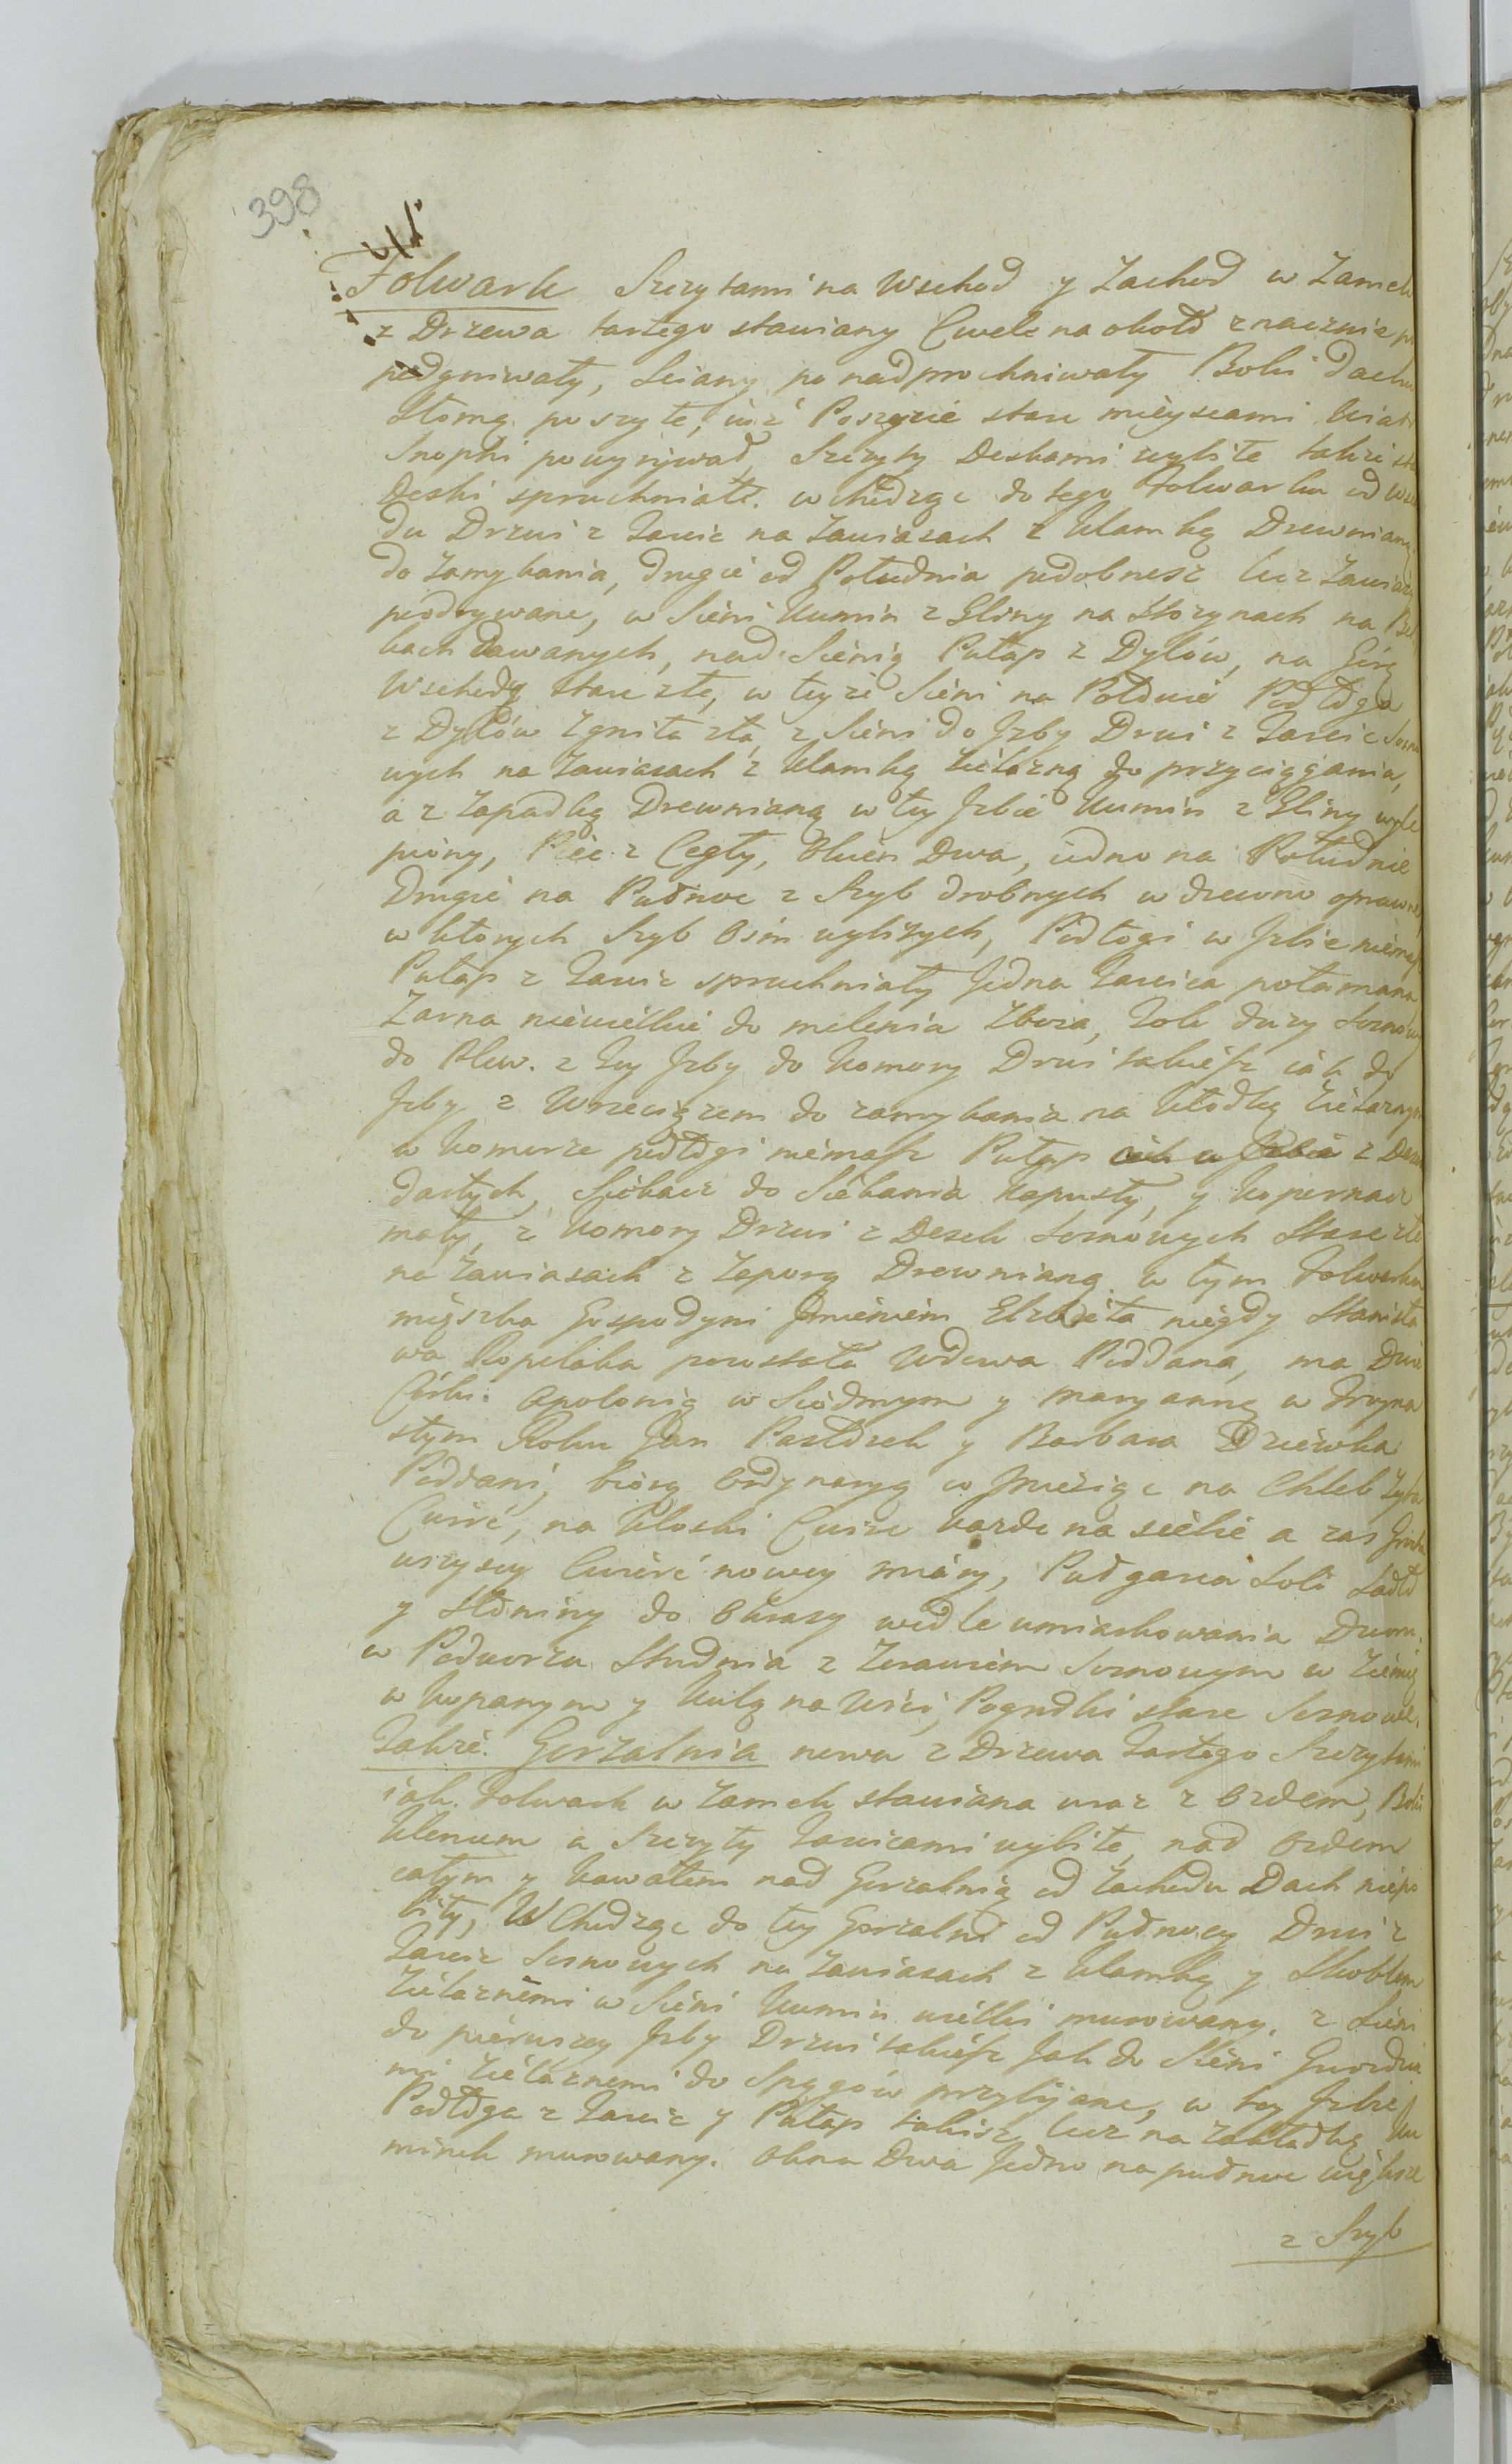 398
Folwark Szczytami na Wschod y Zachod w Zamek
z Drzewa tartego stawiany Cwele na okołł znacznie
podgniwały, Sciany ponadprochniwały Boki Dachu
Słomą poszyte, iuż Poszycie stare mieyscami Wiatr
Snopki powyrywał, Szczyty Deskami wybite takie
Deski spruchniałe. wchodząc do tego Folwarku od
du Drzwi z Tarcic na Zawiasach z Klamką Drewnianą
do Zamykania, drugie od Południa podobnesz lecz Zawiasy
poodrywane, w Sieni Kumin z Gliny na Słozynach na
kach dawanych, nad Sienią Pułap z Dylów, na Górę
Wschody stare złe, w teyże Sieni na Połowie Podłoga
z Dylów Zgniła zła, z Sieni do Jzby Drwi z Tarcic
wych na Zawiasach z Klamką Żielazną do przyciągania,
a z Zapadką Drewnianą w tey Jzbie Kumin z Gliny wyle
piony, Piec z Cegły, Okien Dwa, iedno na Południe
Drugie na Pułnoc z Szyb drobnych w drewno oprawne,
w ktorych Szyb Osm wybitych, Podłogi w Jzbie niemasz
Pułap z Tarcic spruchniały Jedna Tarcica połamana
Żarna niewielkie do melenia Zboża, Sok duży Sosnowy
do Plew. z tey Jzby do Komory Drwi takiesz iak do
Jzby z Wrzeciązem do zamykania na Kłodkę Żielaznym
w Komorze podłogi niemasz Pułap z
dartych, Siekacz do Siekania Kapusty, y Kopernacz
mały, z Komory Drzwi z Desek Sosnowych Stare złe
na Zawiasach z Zaporą Drewnianą w tym Folwarku
mięszka Gospodyni Jmieniem Elzbieta niegdy Stanisła
wa Kopelaka pozostała Wdowa Poddana, ma Dwie
Córki Apolonią w Siódmym y Maryannę w Trzyna
stym Roku Jan Parobek y Barbara Dziewka
Poddani, biorą Ordynaryą w Miesiąc na Chleb Żyta
Cwierć, na Kloski Cwierc kazde na siebie a zas
wszyscy Cwierć nowey miary, Pułgarca Soli Sadło
y Słoniny do Okrasy wedle umiarkowania Dworu.
w Podworzu Studnia z Żurawiem Sosnowym w Ziemię
wkopanym y Kulą na Wici, Pogrodki stare Sosnowe.
Także Gorzalnia nowa z Drzewa Tartego Szczytami
iak Folwark w Zamek stawiana wraz z Ozdem, Boki
Klenum a Szczyty Tarcicami wybite, nad Ozdem
całym y kawałem nad Gorzalnią od Zachodu Dach niepo
bity, Wchodząc do tey Gorzalni od Pułnocy Drwi z
Tarcic Sosnowych na Zawiasach z Klamką y Skoblem
Żielaznemi w Sieni Kumin wielki murowany. z Sieni
do pierwszey Jzby Drzwi takiesz Jak do Sieni Gwozdzia
mi żielaznemi do Spągów przybijane, w tey Jzbie
Podłoga z Tarcic y Pułap takisz lecz na Zakładkę Ku
minek murowany. Okna Dwa Jedno na pułnoc większe
z Szyb